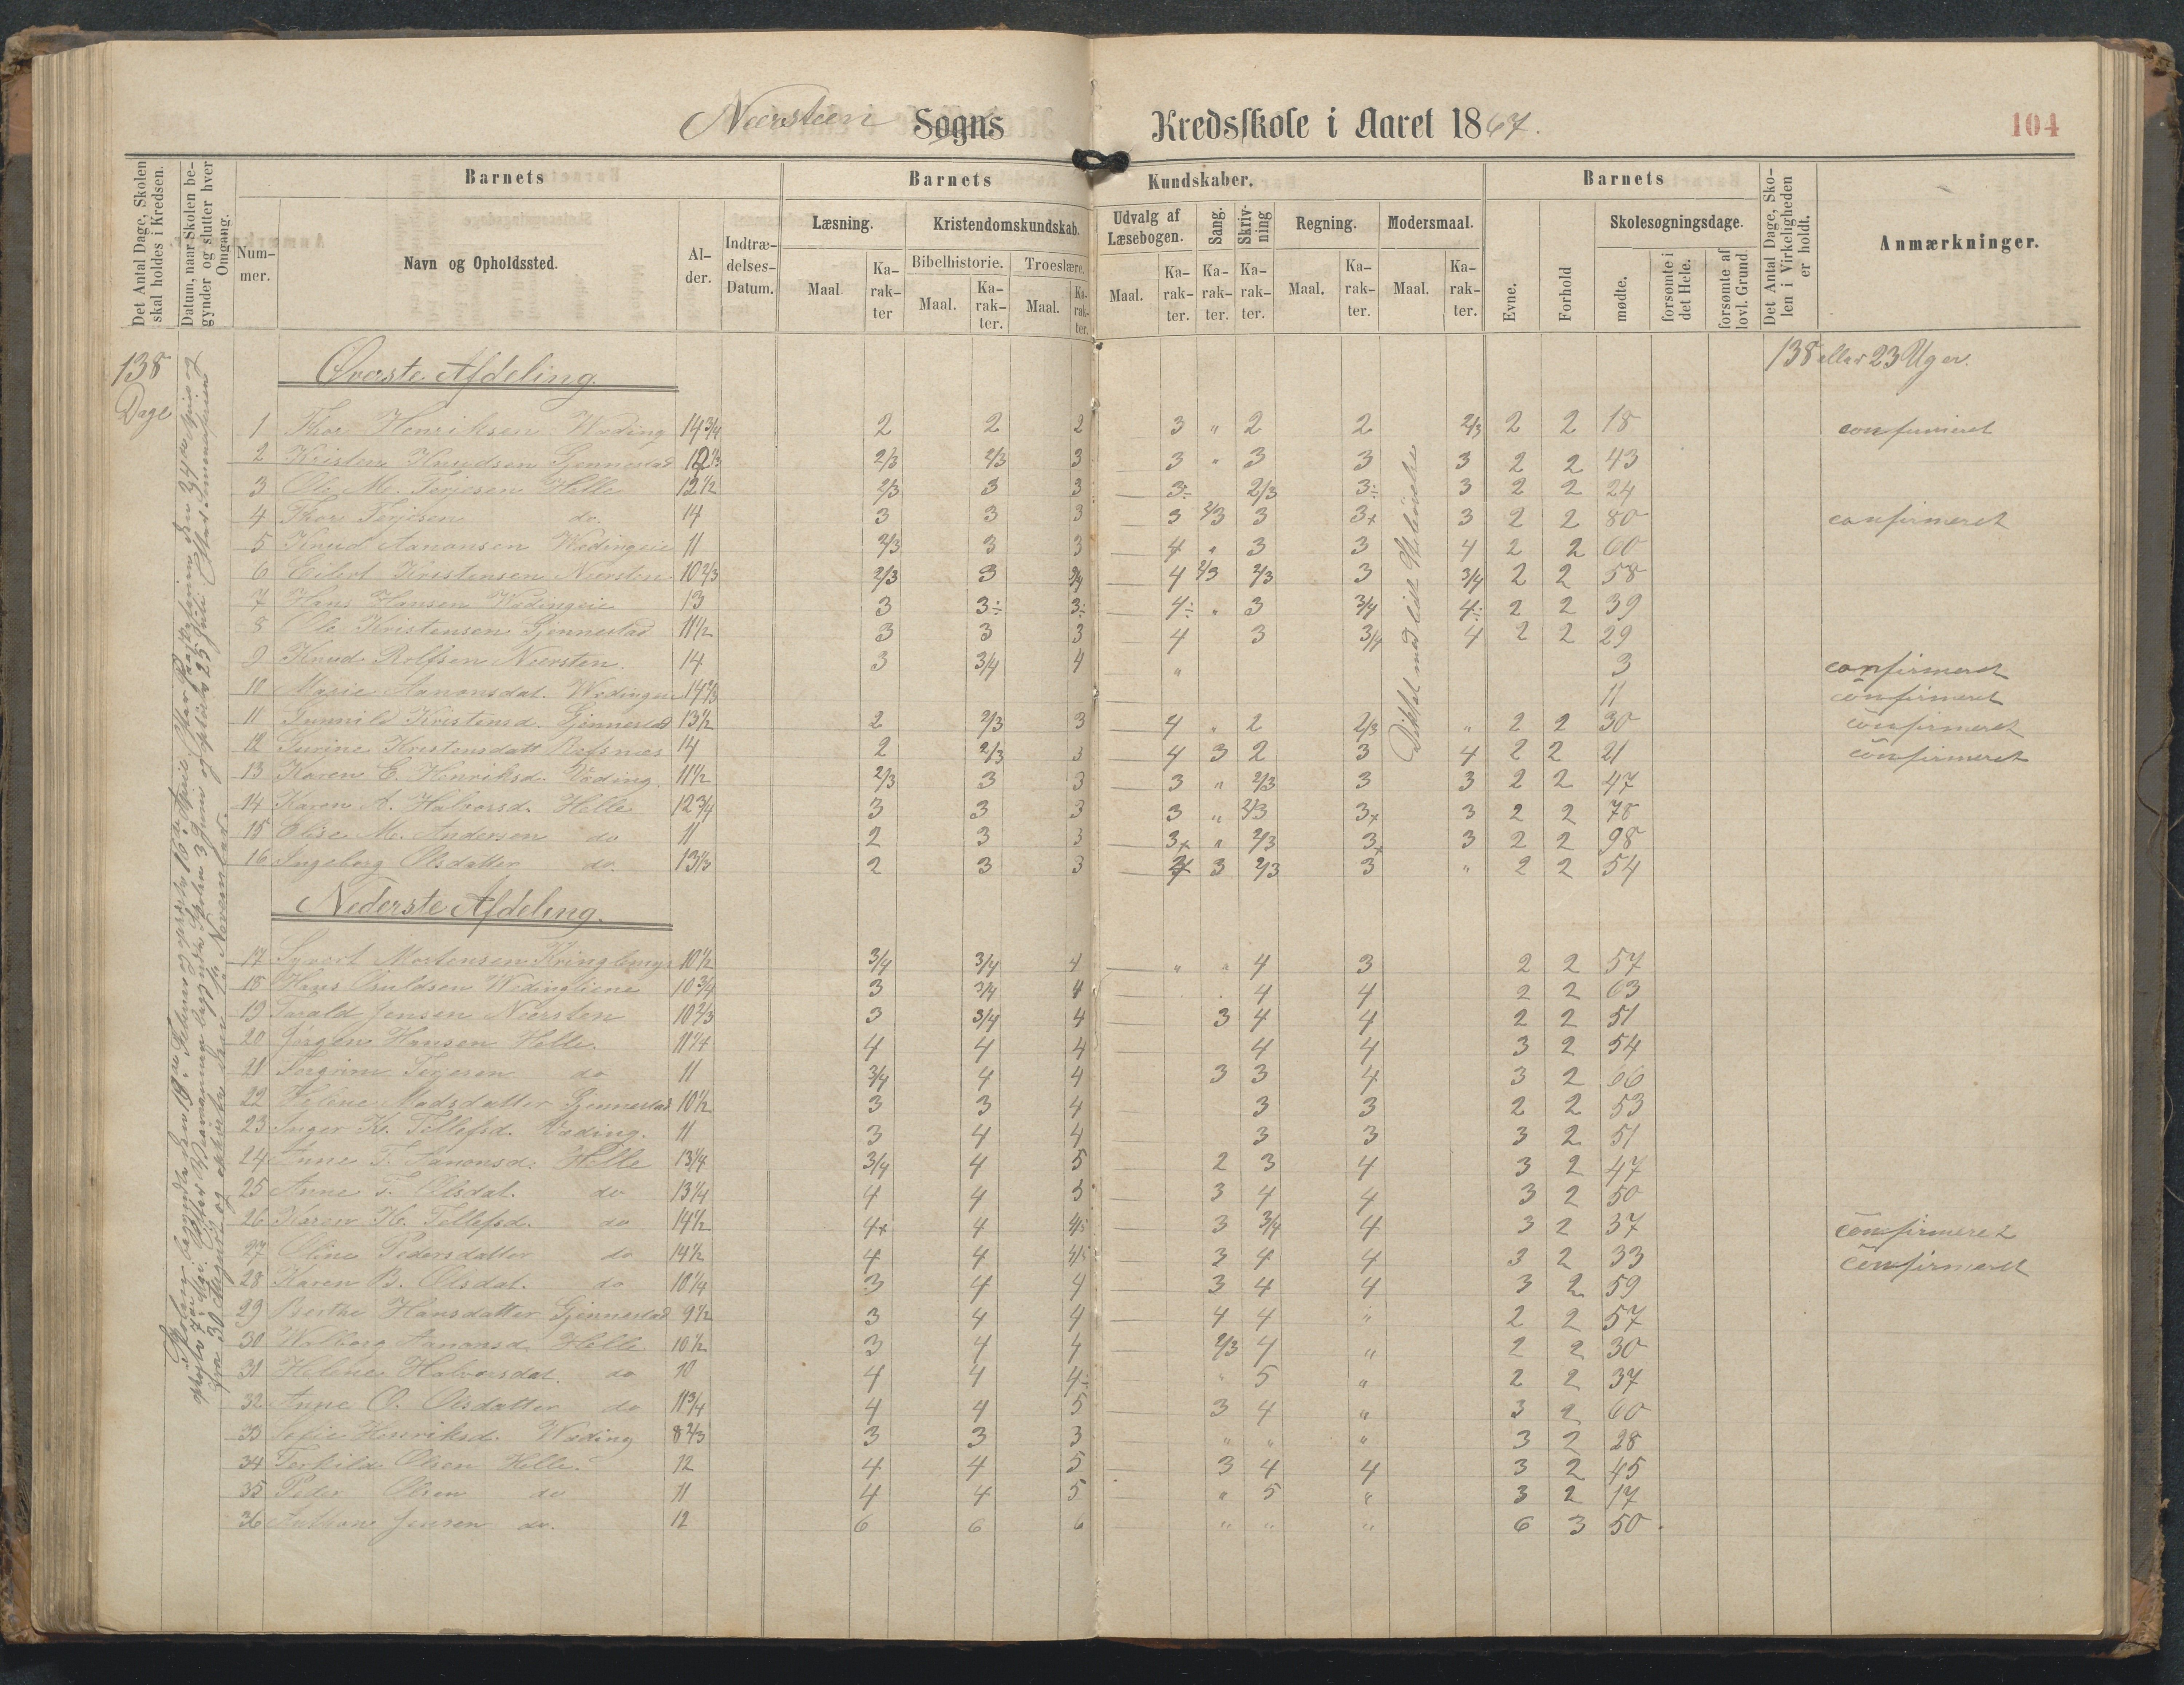 Neersteen Sogns Kredsskole i Aaret 1867.
104
Det Antal Dage, Skolen skal holdes i Kredsen.
Datum, naar Skolen begynder og slutter hver Omgang.
Barnets
Nummer.
Navn og Opholdssted.
Alder.
Indtrædelses-Datum.
Barnets Kundskaber.
Læsning.
Maal
Karakter
Kristendomskundskab.
Bibelhistorie.
Maal.
Karakter.
Troeslære.
Maal.
Karakter.
Udvalg af Læsebogen.
Maal.
Karakter.
Sang.
Karakter.
Skrivning
Karakter.
Regning.
Maal.
Karakter.
Modersmaal.
Maal.
Karakter.
Barnets
Evne.
Forhold
Skolesøgningsdage.
mødte.
forsømte i det Hele.
forsømte af lovl. Grund.
Det Antal Dage, Skolen i Virkeligheden er holdt.
Anmærkninger.
138 Dage
138 eller 23 Uger.
Øverste Afdeling.
1 Thor Henriksen Wæding 14 3/4 2 2 2 3 " 2 2 2/3 2 2 18 confirmeret
2 Kristen Knudsen Gjennestad 2/3 2/3 3 3 " 3 3 3 2 2 43
3 Ole M. Terjesen Helle 12 1/2 2/3 3 3 3÷ 2/3 3÷ 3 2 2 24
4 Thor Terjesen do. 14 3 3 3 3 2/3 3 3+ 3 2 2 80 confirmeret
5 Knud Aanonsen Wædingeie 11 2/3 3 3 4 " 3 3 4 2 2 60
6 Eilert Kristensen Neersten 10 2/3 2/3 3 3/4 4 2/3 2/3 3 3/4 2 2 58
7 Hans Hansen Wædingeie 13 3 3÷ 3÷ 4÷ " 3 3/4 4÷ 2 2 39
8 Ole Kristensen Gjennestad 11 1/2 3 3 3 4 3 3/4 4 2 2 29
9 Knud Rolfsen Neersten. 14 3 3/4 4 " 3 confirmeret
10 Marie Aanonsdat. Wædingeie 14 2/3 11 confirmeret
11 Gunnild Kristensd. Gjennestad 13 1/2 2 2/3 3 4 " 2 2/3 " 2 2 30 confirmeret
12 Turine Kristensdatt. Refsnæs 14 2 2/3 3 4 3 2 3 4 2 2 21 confirmeret
13 Karen E. Henriksd. Væding. 11 1/2 2/3 3 3 3 " 2/3 3 3 2 2 47
14 Karen A. Halvorsd. Helle 12 3/4 3 3 3 3 " 2/3 3+ 3 2 2 78
15 Elise M. Andersen do 11 2 3 3 3+ " 2/3 3+ 3 2 2 98
16 Ingeborg Olsdatter do. 13 1/3 2 3 3 3 2/3 3 " 2 2 54
Diktat med lidt
Nederste Afdeling.
17 Syvert Mortensen Kringlemyr 10 1/2 3/4 3/4 4 " " 4 3 2 2 57
18 Hans Osuldsen Wædingliene 10 3/4 3 3/4 4 4 4 2 2 63
19 Tarald Jensen Neersten 10 2/3 3 3/4 4 3 4 4 2 2 51
20 Jørgen Hansen Helle. 11 1/4 4 4 4 4 4 3 2 54
21 Torgrim Terjesen do 11 3/4 4 4 3 3 4 3 2 66
22 Helene Madsdatter Gjennestad 10 1/2 3 3 4 3 3 2 2 53
23 Inger K. Tellefsd. Væding. 11 3 4 4 3 3 3 2 51
24 Anne T. Aanonsd. Helle 13 1/4 3/4 4 5 2 3 4 3 2 47
25 Anne T. Olsdat. do 13 1/4 4 4 5 3 4 4 3 2 50
26 Karen K. Tellefsd. do 14 1/2 4+ 4 4/5 3 3/4 4 3 2 37 confirmeret
27 Oline Pedersdatter do 14 1/2 4 4 4/5 3 4 4 3 2 33 confirmeret
28 Karen B. Olsdat. do 10 1/4 3 4 4 3 4 4 3 2 59
29 Berthe Hansdatter Gjennestad 9 1/2 3 4 4 4 4 " 2 2 57
30 Walborg Aanonsd. Helle 10 1/2 3 4 4 2/3 4 " 2 2 30
31 Helene Halvorsdat. do 10 4 4 4÷ " 5 " 2 2 37
32 Anne O. Olsdatter do 11 3/4 4 4 5 3 4 " 3 2 60
33 Sofie Henriksd. Wæding 8 2/3 3 3 3 " " " 3 2 28
34 Terkild Olsen Helle. 12 4 4 5 3 4 4 3 2 45
35 Peder Olsen do 11 4 4 5 " 5 " 3 2 17
36 Jensen do. 12 6 6 6 " " " 6 3 50.